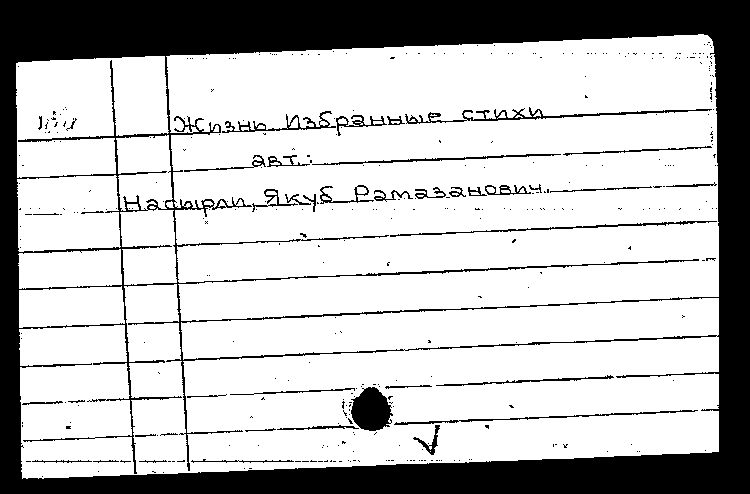 Жизнь Избранные стихи
авт.:
Насырли, Якуб Рамазанович.